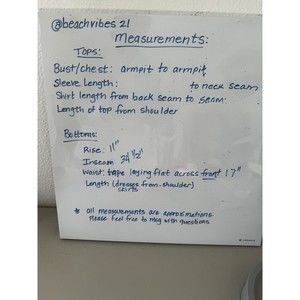 @beachvibes 21
Measurements:
Tops:
Bust/chest: armpit to armpit
Sleeve Length: to neck seam
Shirt length from back seam to seam:
Length of top from shoulder
Bottoms:
Rise: 11"
Inseam 24 1/2"
Waist: tape laying flat across front 17"
Length (dresses from shoulder)
skirts
* all measurements are approximations.
Please feel free to msg with questions